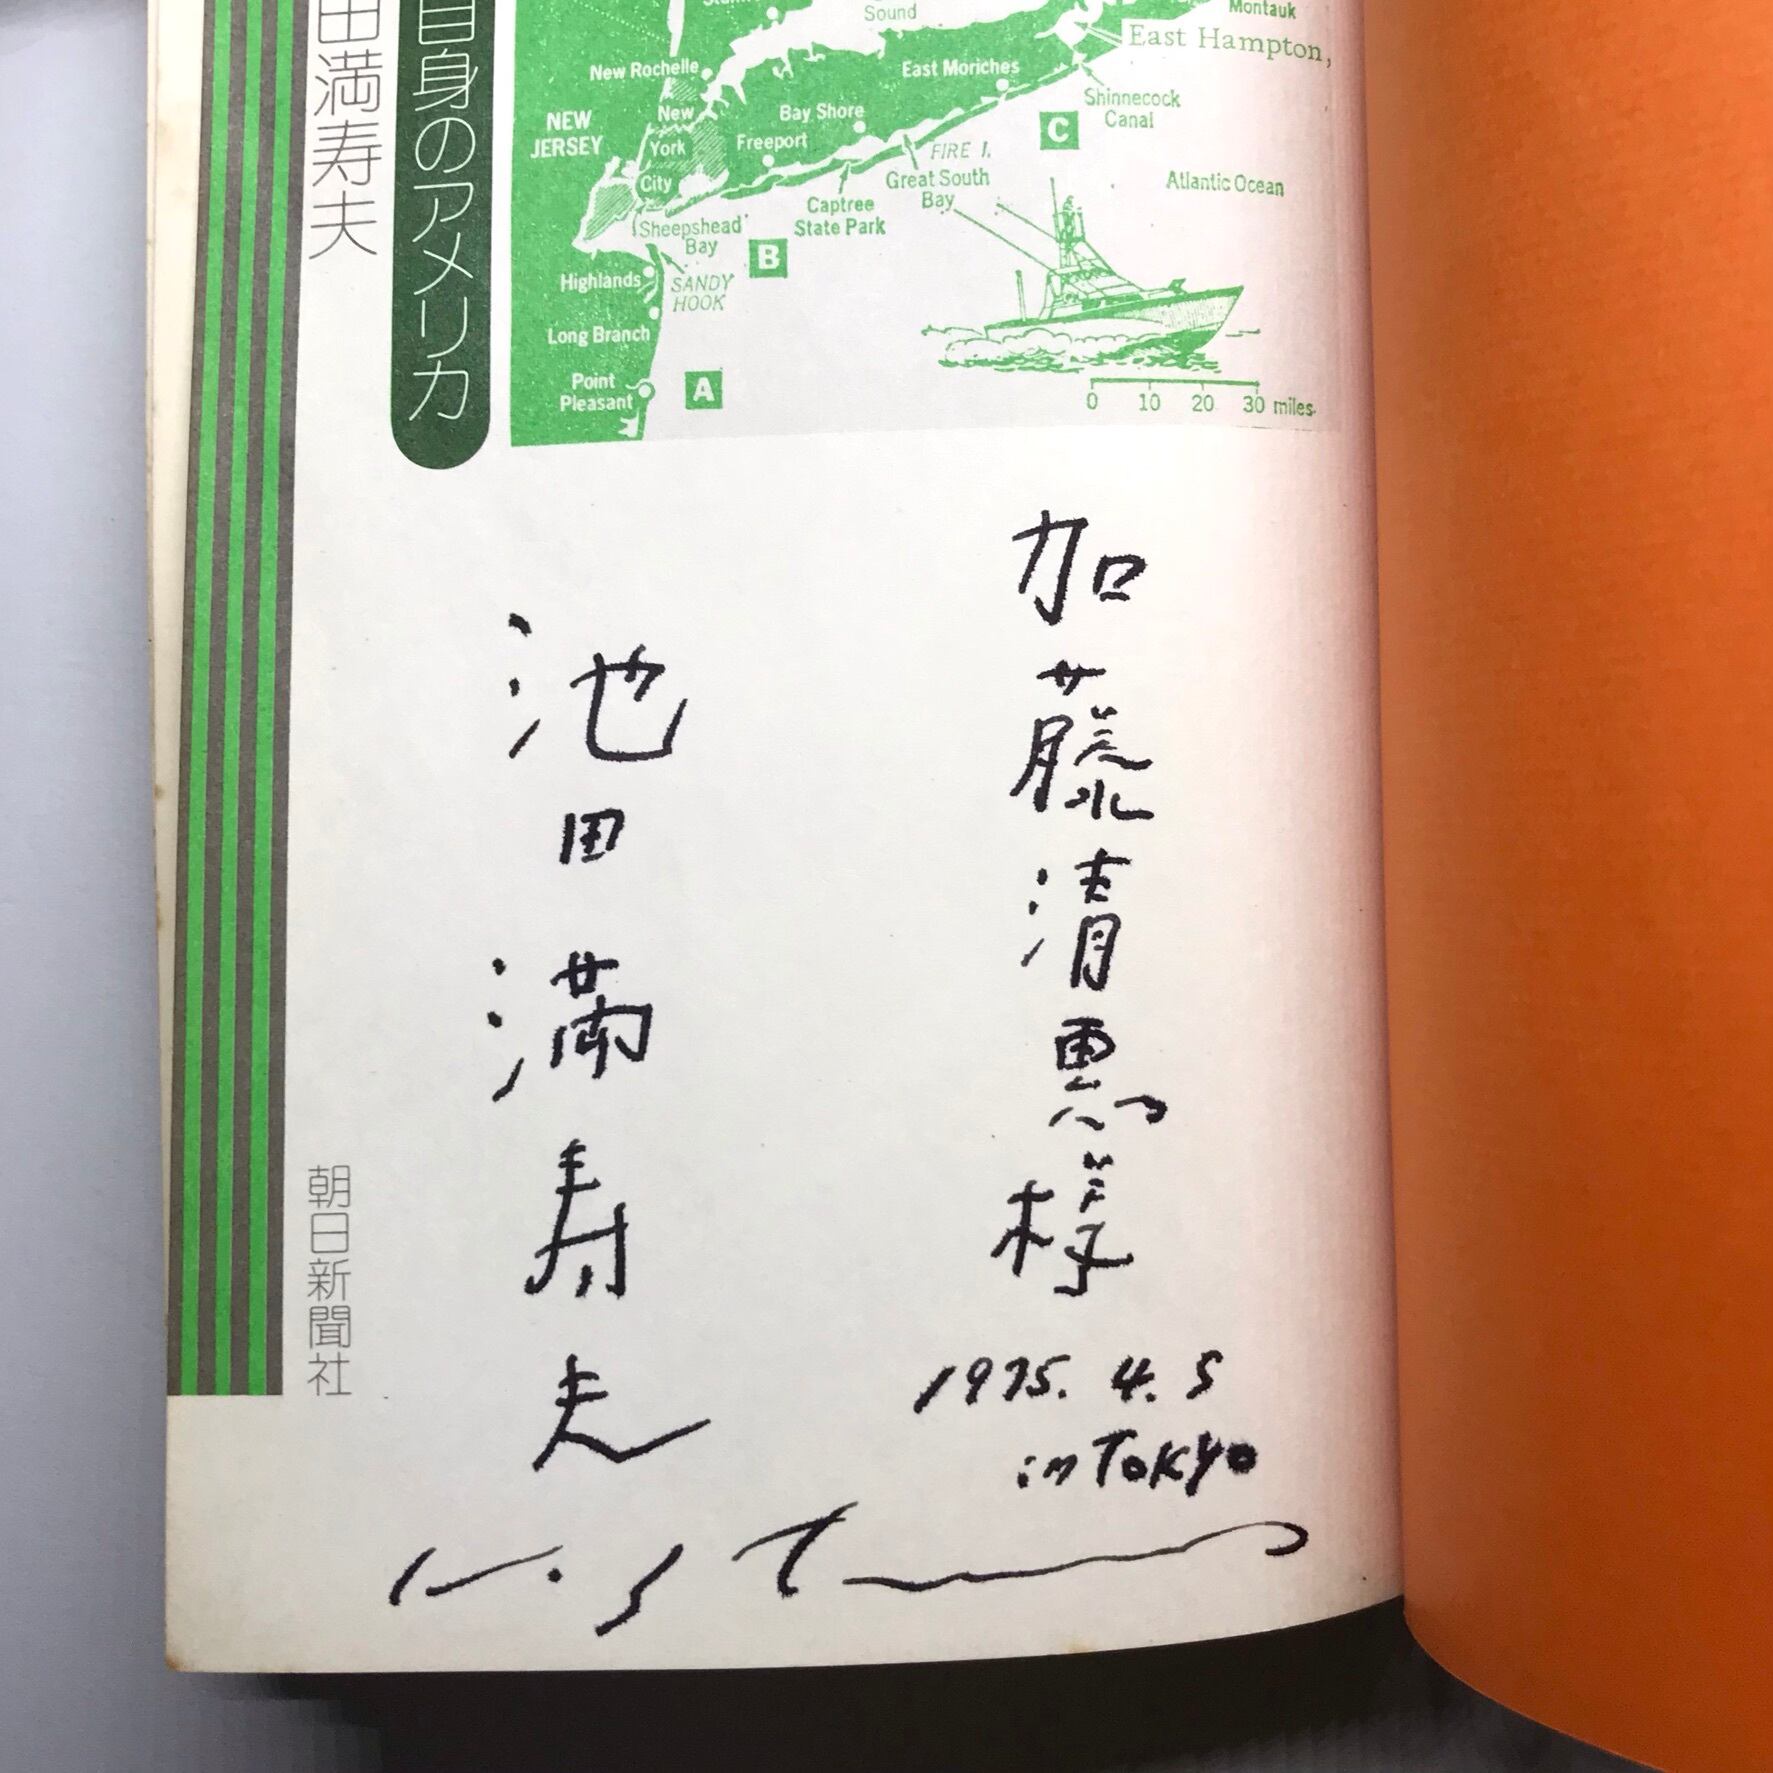 Sound
Montauk
East Hampton,
New Rochelle
East Moriches
NEW
JERSEY
New
York
City
Bay Shore
Freeport
Shinnecock
Canal
C
FIRE I.
Great South
Bay
Captree
State Park
Atlantic Ocean
Sheepshead
Bay
B
Highlands
SANDY
HOOK
Long Branch
Point
Pleasant
A
0 10 20 30 miles
自身のアメリカ
田満寿夫
朝日新聞社
加藤清恵様
1975. 4. 5
in Tokyo
池田満寿夫